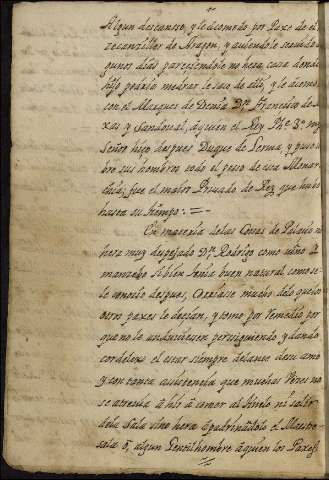 Algun descanso, y le acomodo por Paxe de el
zecanziller de Aragon, y auiendole seruido
gunos dias pareçiendole no hera casa donde
hijo podria medrar le saco de alli, y le acomo
con el Marques de Denia Dn. Francisco de
xas y Sandoual, a quien el Rey Phe. 3o. my
Señor hizo despues Duque de Lerma, y puso
bre sus hombros todo el peso de esa Monar
chia; fue el maior Priuado de Rey que hubo
hasta su tiempo: =
En materia de las Cosas de Palacio no
hera muy despejado Dn. Rodrigo como niño
mançebo si bien tenia buen natural como se
le conoçio despues, Corriase mucho delo que los
otros paxes le decian, y tomo por remedio por
que no le anduuiesen persiguiendo y dando
cordelexo el estar siempre delante de su amo
y con tanta asistencia que muchas Veçes no
se atreuia a hir a comer al tinelo ni salir
de la Sala sino hera apadrinandole el Maestre
sala o, algun Gentilhombre a quien los Paxes